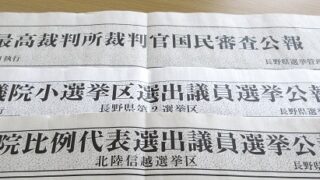 最高裁判所裁判官国民審査公報
執行
長野県選挙管理
議院小選挙区選出議員選挙公報
長野県第2選挙区
長野県選
院比例代表選出議員選挙公
北陸信越選挙区